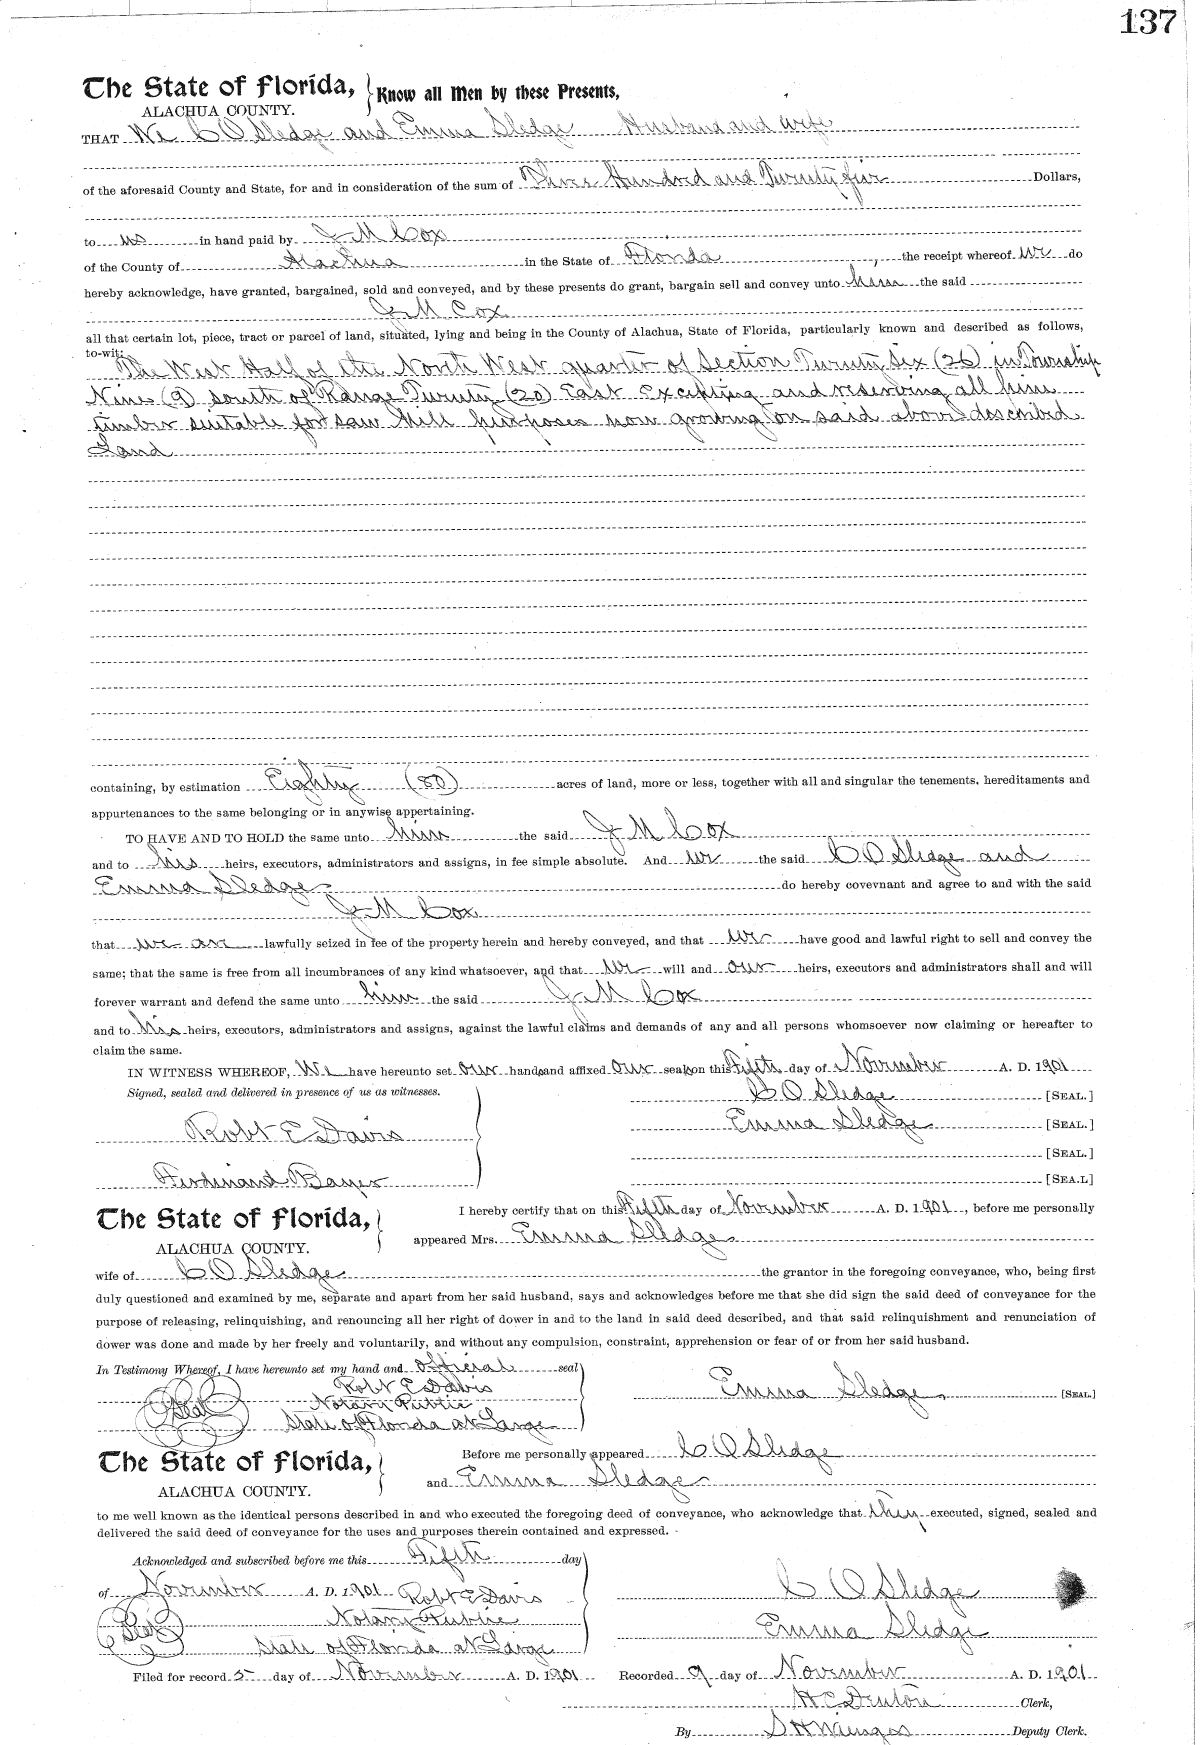 137
The State of Florida, } Know all Men by these Presents,
ALACHUA COUNTY.
THAT We C O Sledge and Emma Sledge Husband and Wife
of the aforesaid County and State, for and in consideration of the sum of Three Hundred and Twenty five Dollars,
to us in hand paid by J M Cox
of the County of Alachua in the State of Florida, the receipt whereof we do
hereby acknowledge, have granted, bargained, sold and conveyed, and by these presents do grant, bargain sell and convey unto him the said
J M Cox
all that certain lot, piece, tract or parcel of land, situated, lying and being in the County of Alachua, State of Florida, particularly known and described as follows,
to-wit:
The West Half of the North West quarter of Section Twenty Six (26) in Township
Nine (9) south of Range Twenty (20) East Excepting and reserving all pine
timber suitable for saw Mill purposes now growing on said above described
Land
containing, by estimation Eighty (80) acres of land, more or less, together with all and singular the tenements, hereditaments and
appurtenances to the same belonging or in anywise appertaining.
TO HAVE AND TO HOLD the same unto him the said J M Cox
and to his heirs, executors, administrators and assigns, in fee simple absolute. And we the said C O Sledge and
Emma Sledge do hereby covevnant and agree to and with the said
J M Cox
that we are lawfully seized in fee of the property herein and hereby conveyed, and that we have good and lawful right to sell and convey the
same; that the same is free from all incumbrances of any kind whatsoever, and that we will and our heirs, executors and administrators shall and will
forever warrant and defend the same unto him the said J M Cox
and to his heirs, executors, administrators and assigns, against the lawful claims and demands of any and all persons whomsoever now claiming or hereafter to
claim the same.
IN WITNESS WHEREOF, We have hereunto set our hands and affixed our seals on this Fifth day of November A. D. 1901
Signed, sealed and delivered in presence of us as witnesses.
C O Sledge [SEAL.]
Robt E Davis
Emma Sledge [SEAL.]
[SEAL.]
Ferdinand Bayer
[SEA.L]
The State of Florida, }
ALACHUA COUNTY.
I hereby certify that on this Fifth day of November A. D. 1901, before me personally
appeared Mrs. Emma Sledge
wife of C O Sledge the grantor in the foregoing conveyance, who, being first
duly questioned and examined by me, separate and apart from her said husband, says and acknowledges before me that she did sign the said deed of conveyance for the
purpose of releasing, relinquishing, and renouncing all her right of dower in and to the land in said deed described, and that said relinquishment and renunciation of
dower was done and made by her freely and voluntarily, and without any compulsion, constraint, apprehension or fear of or from her said husband.
In Testimony Whereof, I have hereunto set my hand and official seal
Robt E Davis
Emma Sledge [SEAL.]
Seal Notary Public
State of Florida at Large
The State of Florida, }
ALACHUA COUNTY.
Before me personally appeared C O Sledge
and Emma Sledge
to me well known as the identical persons described in and who executed the foregoing deed of conveyance, who acknowledge that they executed, signed, sealed and
delivered the said deed of conveyance for the uses and purposes therein contained and expressed.
Acknowledged and subscribed before me this Fifth day
of November A. D. 1901 Robt E Davis
C O Sledge
Seal Notary Public
Emma Sledge
State of Florida at Large
Filed for record 5 day of November A. D. 1901 Recorded 9 day of November A. D. 1901
H C Denton Clerk,
By S H Wienges Deputy Clerk.